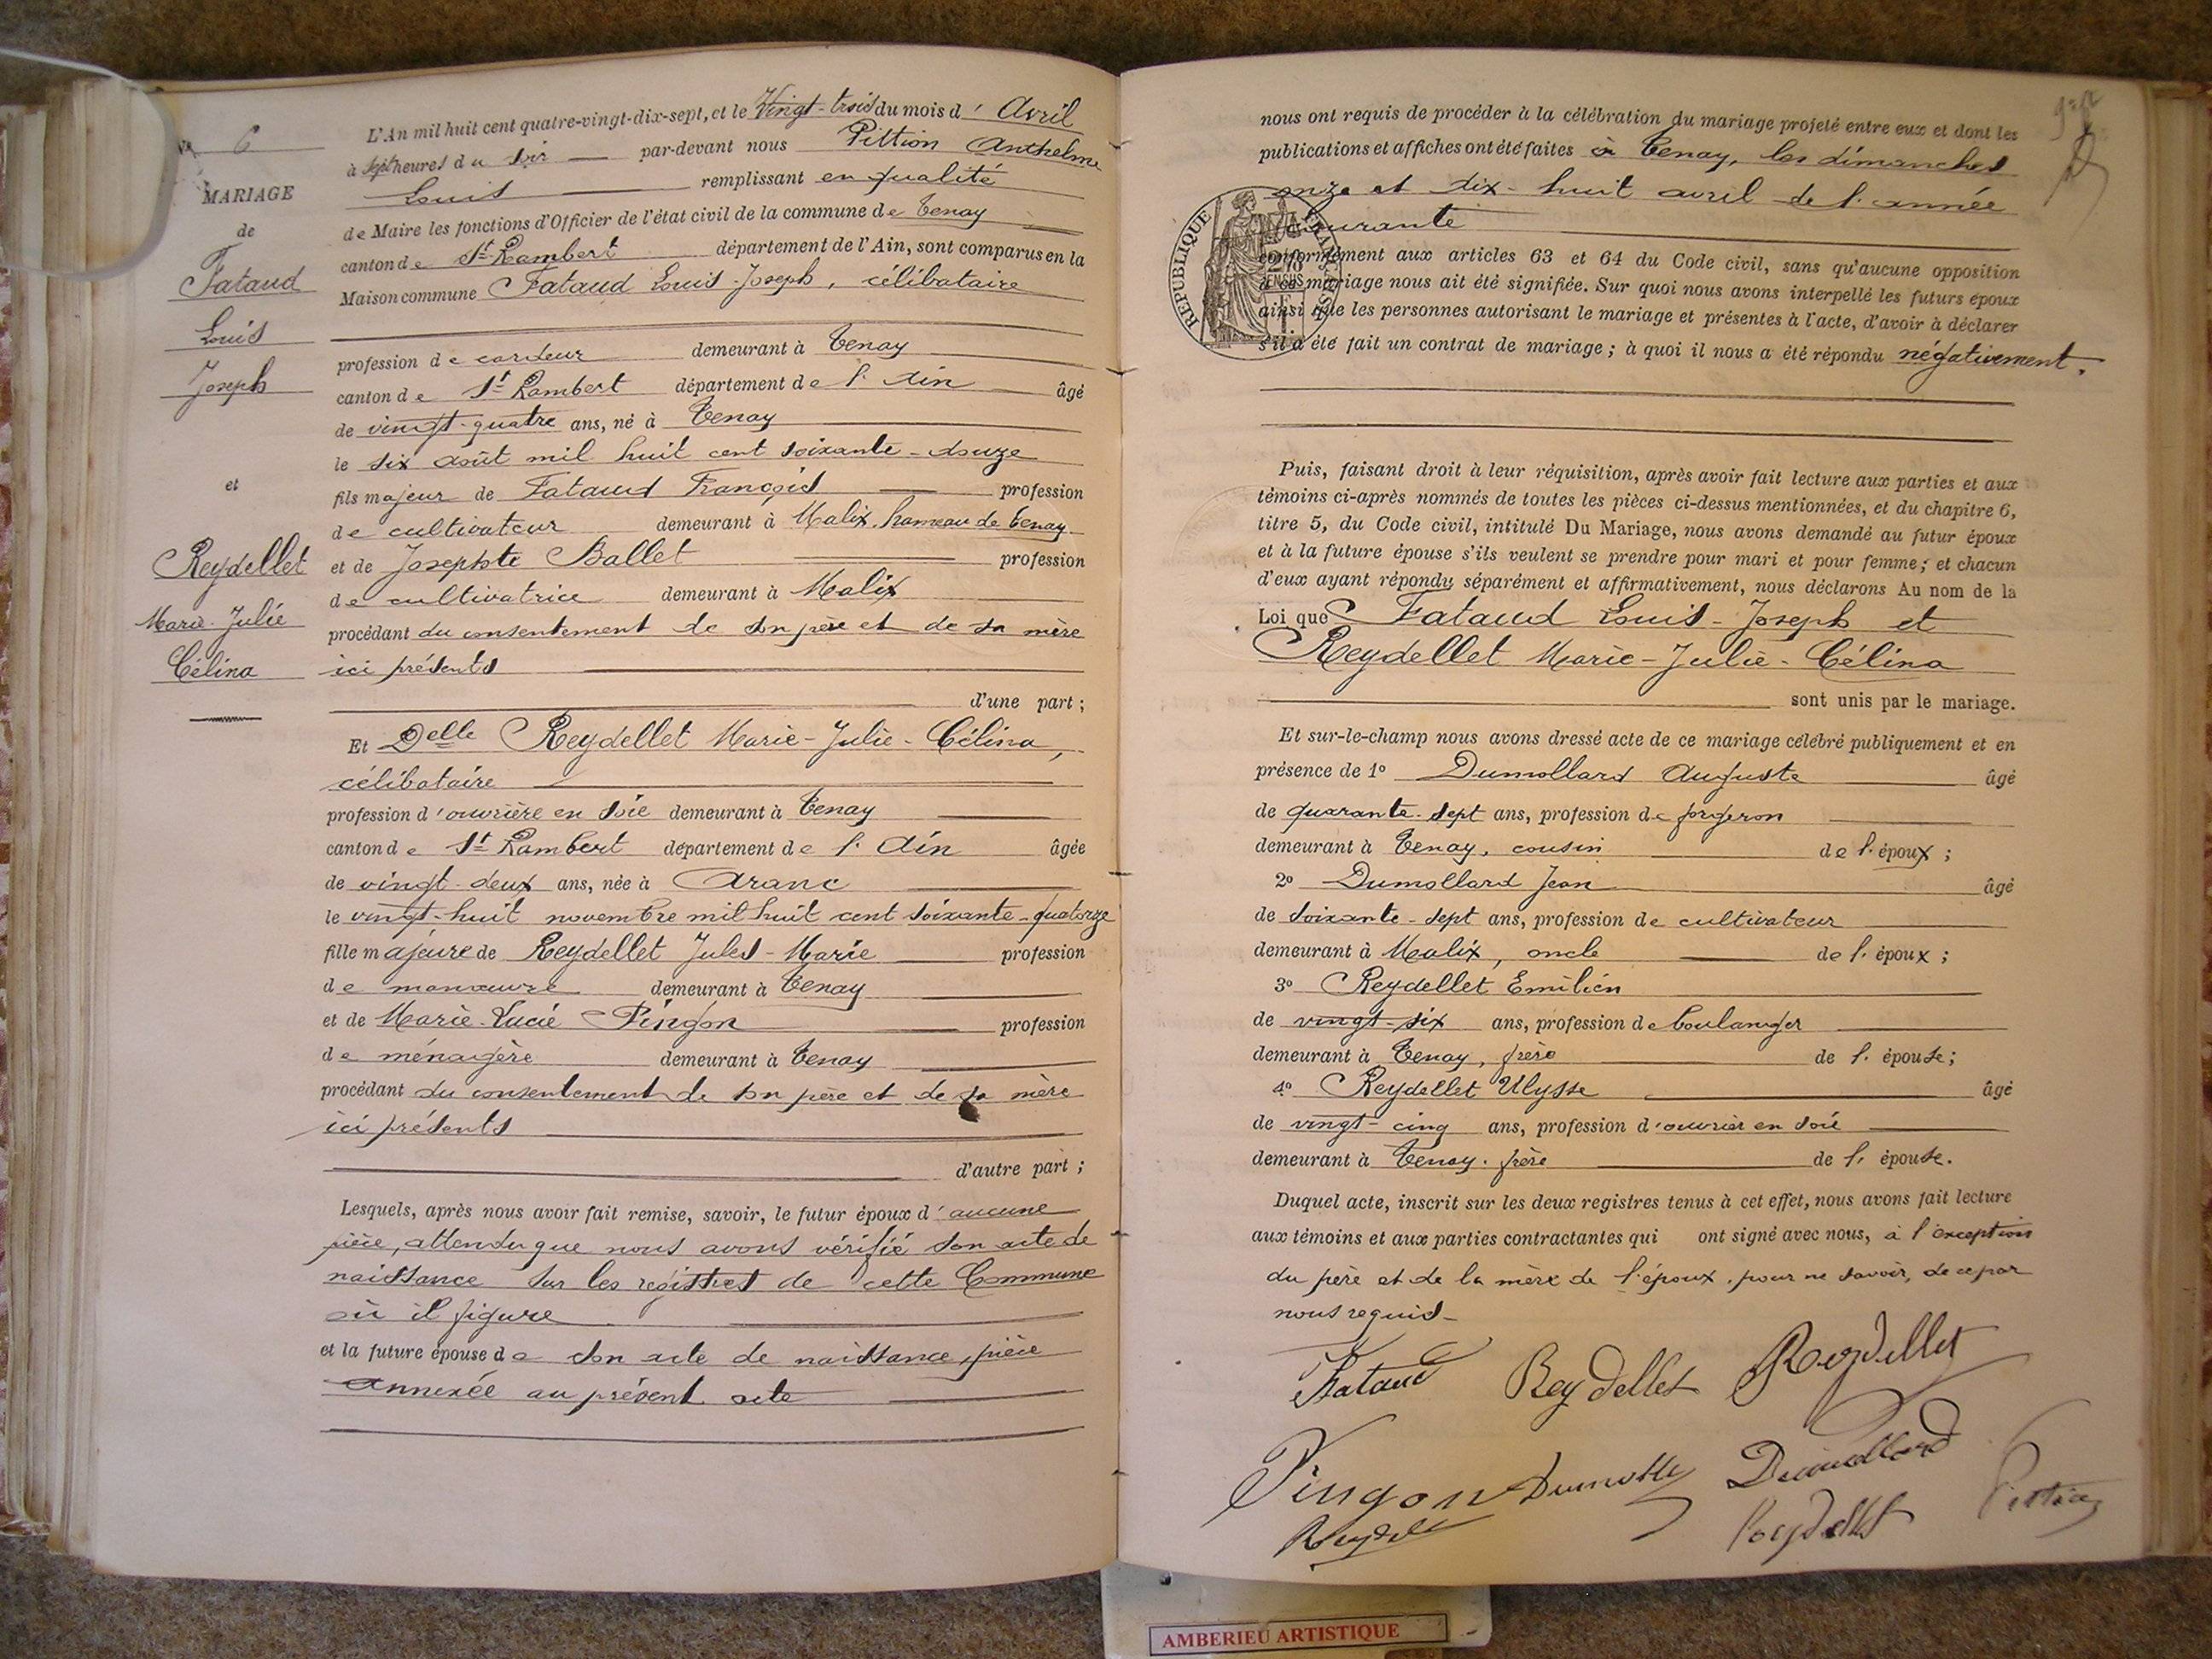 N° 6
MARIAGE
de
Fataud
Louis
Joseph
et
Reydellet
Marie-Julie
Célina
L'An mil huit cent quatre-vingt-dix-sept, et le Vingt-trois du mois d'Avril
à sept heures du soir par-devant nous Pittion Anthelme
Louis remplissant en qualité
de Maire les fonctions d'Officier de l'état civil de la commune de Tenay
canton de St Rambert département de l'Ain, sont comparus en la
Maison commune Fataud Louis-Joseph, célibataire
profession de cardeur demeurant à Tenay
canton de St Rambert département de l'Ain âgé
de vingt-quatre ans, né à Tenay
le six août mil huit cent soixante-douze
fils majeur de Fataud François profession
de cultivateur demeurant à Malix, hameau de Tenay
et de Josephte Ballet profession
de cultivatrice demeurant à Malix
procédant du consentement de son père et de sa mère
ici présents
d'une part ;
Et Delle Reydellet Marie-Julie-Célina,
célibataire
profession d'ouvrière en soie demeurant à Tenay
canton de St Rambert département de l'Ain âgée
de vingt-deux ans, née à Aranc
le vingt-huit novembre mil huit cent soixante-quatorze
fille majeure de Reydellet Jules-Marie profession
de manœuvre demeurant à Tenay
et de Marie-Lucie Pingon profession
de ménagère demeurant à Tenay
procédant du consentement de son père et de sa mère
ici présents
d'autre part ;
Lesquels, après nous avoir fait remise, savoir, le futur époux d'aucune
pièce, attendu que nous avons vérifié son acte de
naissance sur les registres de cette Commune
où il figure
et la future épouse de son acte de naissance, pièce
annexée au présent acte
nous ont requis de procéder à la célébration du mariage projeté entre eux et dont les
publications et affiches ont été faites à Tenay, les dimanches
onze et dix-huit avril de l'année
courante
conformément aux articles 63 et 64 du Code civil, sans qu'aucune opposition
à ce mariage nous ait été signifiée. Sur quoi nous avons interpellé les futurs époux
ainsi que les personnes autorisant le mariage et présentes à l'acte, d'avoir à déclarer
s'il a été fait un contrat de mariage ; à quoi il nous a été répondu négativement.
RÉPUBLIQUE FRANÇAISE
Puis, faisant droit à leur réquisition, après avoir fait lecture aux parties et aux
témoins ci-après nommés de toutes les pièces ci-dessus mentionnées, et du chapitre 6,
titre 5, du Code civil, intitulé Du Mariage, nous avons demandé au futur époux
et à la future épouse s'ils veulent se prendre pour mari et pour femme ; et chacun
d'eux ayant répondu séparément et affirmativement, nous déclarons Au nom de la
Loi que Fataud Louis-Joseph et
Reydellet Marie-Julie-Célina
sont unis par le mariage.
Et sur-le-champ nous avons dressé acte de ce mariage célébré publiquement et en
présence de 1° Dumollard Auguste âgé
de quarante-sept ans, profession de forgeron
demeurant à Tenay, cousin de l'époux ;
2° Dumollard Jean âgé
de soixante-sept ans, profession de cultivateur
demeurant à Malix, oncle de l'époux ;
3° Reydellet Emilien
de vingt-six ans, profession de boulanger
demeurant à Tenay, frère de l'épouse ;
4° Reydellet Ulysse âgé
de vingt-cinq ans, profession d'ouvrier en soie
demeurant à Tenay, frère de l'épouse.
Duquel acte, inscrit sur les deux registres tenus à cet effet, nous avons fait lecture
aux témoins et aux parties contractantes qui ont signé avec nous, à l'exception
du père et de la mère de l'époux, pour ne savoir, de ce par
nous requis-
Fataud Reydellet Reydellet
Pingon Dumollard
Reydellet Pittion
AMBERIEU ARTISTIQUE